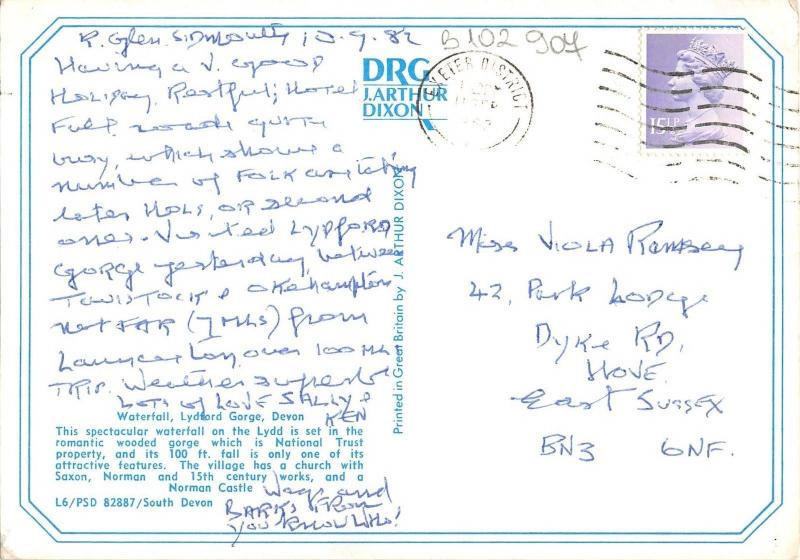 R. Glen. SIDMOUTH 13.9.82
Having a v. good
Holiday. Restful; Hotel
Full. roads quite
busy, which shows a
number of FOLK are taking
later HOLS, OR second
ones. Visited LYDFORD
GORGE yesterday, between
TAVISTOCK & Okehampton
not FAR (7 mls) from
Launceston, over 100 mls
TRIP. Weather superb
Lots of LOVE SALLY &
KEN
Waterfall, Lydford Gorge, Devon
This spectacular waterfall on the Lydd is set in the
romantic wooded gorge which is National Trust
property, and its 100 ft. fall is only one of its
attractive features. The village has a church with
Saxon, Norman and 15th century works, and a
Norman Castle
L6/PSD 82887/South Devon
Wags and
BARKS FROM
YOU KNOW WHO!
DRG
J. ARTHUR
DIXON
Printed in Great Britain by J. ARTHUR DIXON
B102 907
EXETER DISTRICT
15½P
Miss VIOLA Ramsey
42, Park Lodge
Dyke RD,
HOVE.
East SUSSEX
BN3 6NF.